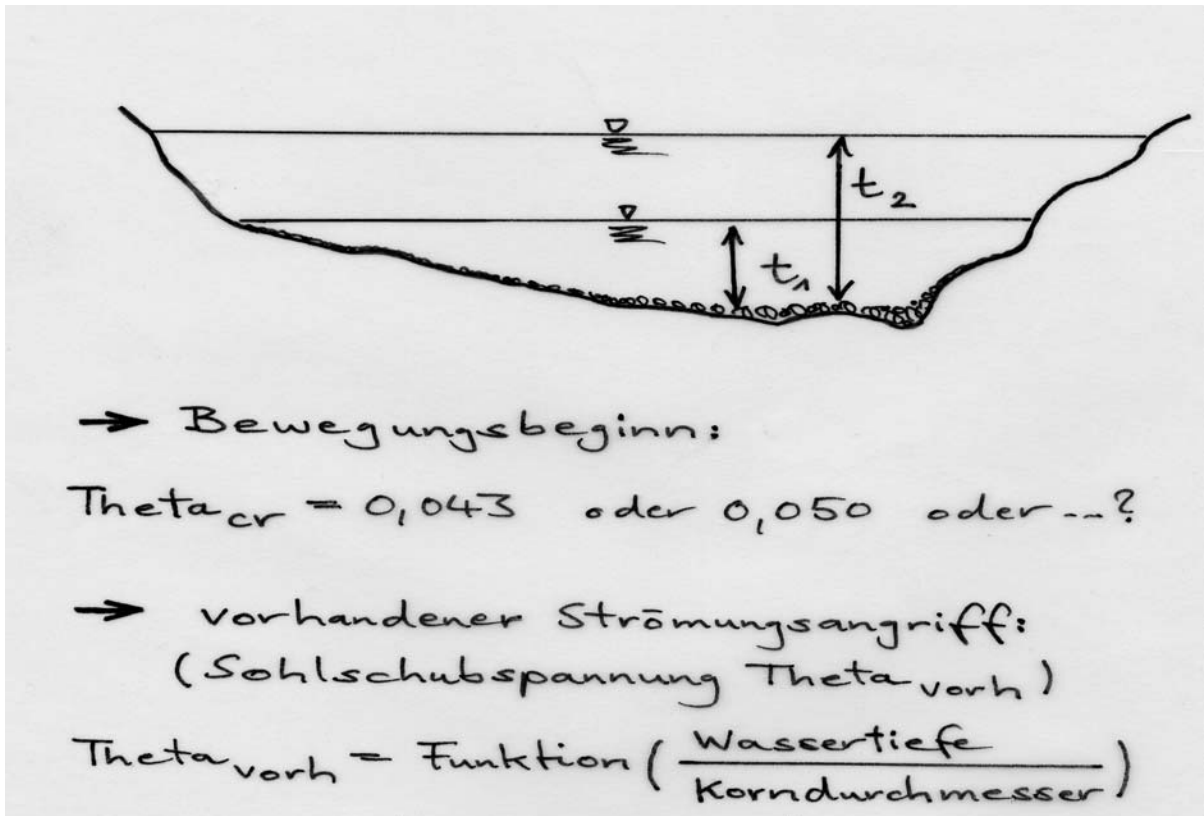 t₂
t₁
→ Bewegungsbeginn:
Theta cr = 0,043 oder 0,050 oder ...?
→ vorhandener Strömungsangriff:
(Sohlschubspannung Theta vorh)
Theta vorh = Funktion (Wassertiefe
Korndurchmesser)